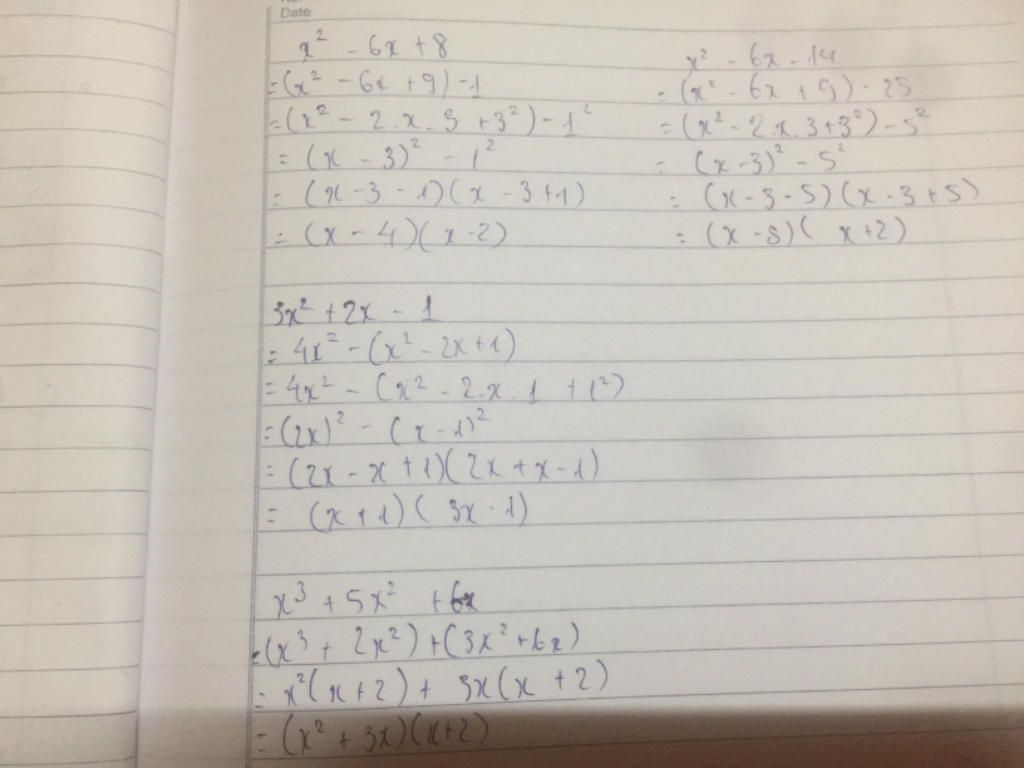 Date
x² - 6x + 8
= (x² - 6x + 9) - 1
= (x² - 2.x.3 + 3²) - 1²
= (x - 3)² - 1²
= (x - 3 - 1)(x - 3 + 1)
= (x - 4)(x - 2)
x² - 6x - 14
= (x² - 6x + 9) - 25
= (x² - 2.x.3 + 3²) - 5²
= (x - 3)² - 5²
= (x - 3 - 5)(x - 3 + 5)
= (x - 8)(x + 2)
3x² + 2x - 1
= 4x² - (x² - 2x + 1)
= 4x² - (x² - 2.x.1 + 1²)
= (2x)² - (x - 1)²
= (2x - x + 1)(2x + x - 1)
= (x + 1)(3x - 1)
x³ + 5x² + 6x
= (x³ + 2x²) + (3x² + 6x)
= x²(x + 2) + 3x(x + 2)
= (x² + 3x)(x + 2)